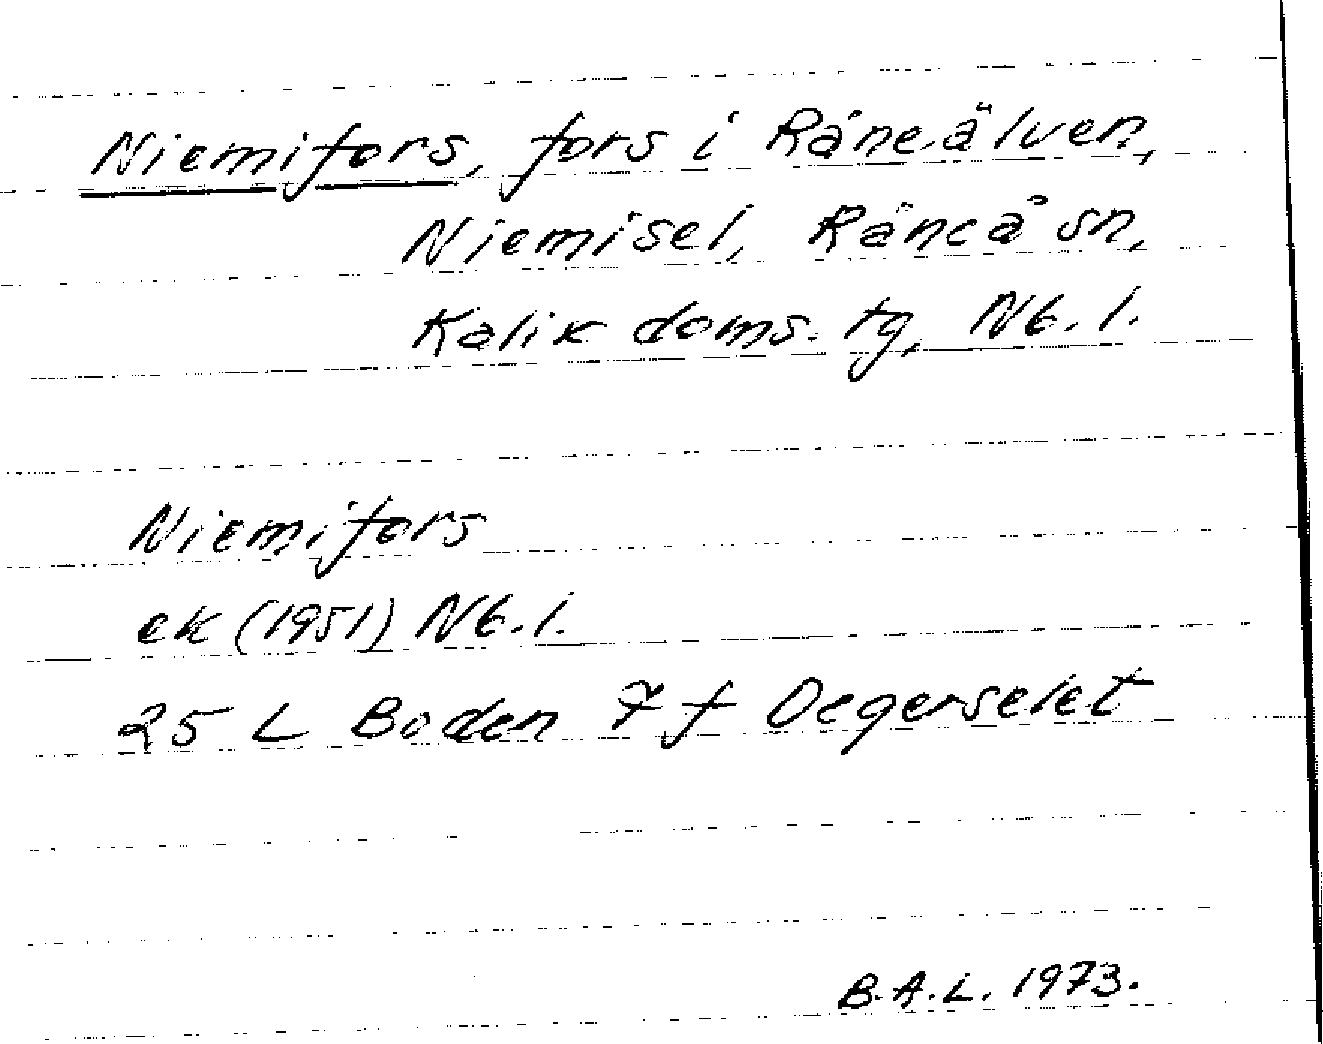 Niemifors, fors i Råneälven,
Niemisel, Råneå sn,
Kalix doms. tg, Nb. l.
Niemifors
ek (1951) Nb. l.
25 L Boden 7 f Degerselet
B.A.L. 1973.